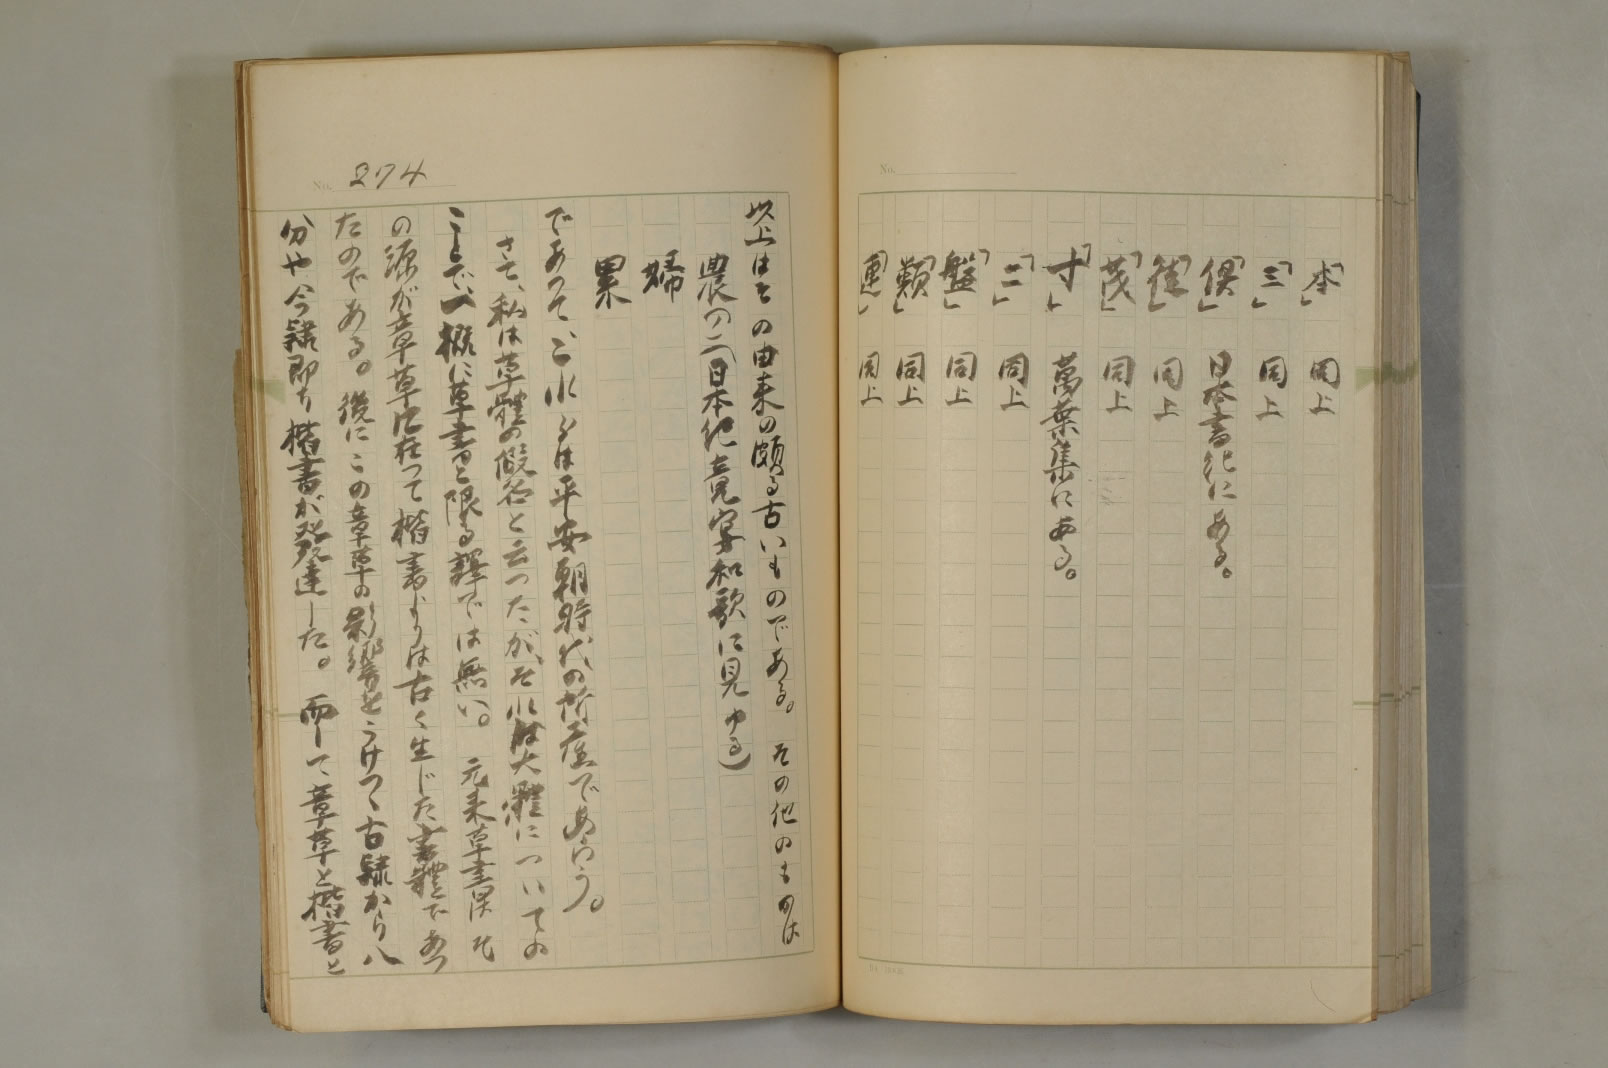 「本」 同上
「三」 同上
「俣」 日本書紀にある。
「徒」 同上
「茂」 同上
「寸」 萬葉集にある。
「二」 同上
「盤」 同上
「類」 同上
「連」 同上
No. 274
以上はその由来の頗る古いものである。その他のものは
農の二(日本紀竟宴和歌に見ゆる)
婦
累
であつて、これらは平安朝時代の所産であらう。
さて、私は草體の假名と云つたが、それは大體についての
ことで、一概に草書と限る譯では無い。元来草書はそ
の源が章草に在つて楷書よりは古く生じた書體であつ
たのである。後にこの章草の影響をうけつゝ古隷から八
分や今隷即ち楷書が発達した。而して章草と楷書と
No.